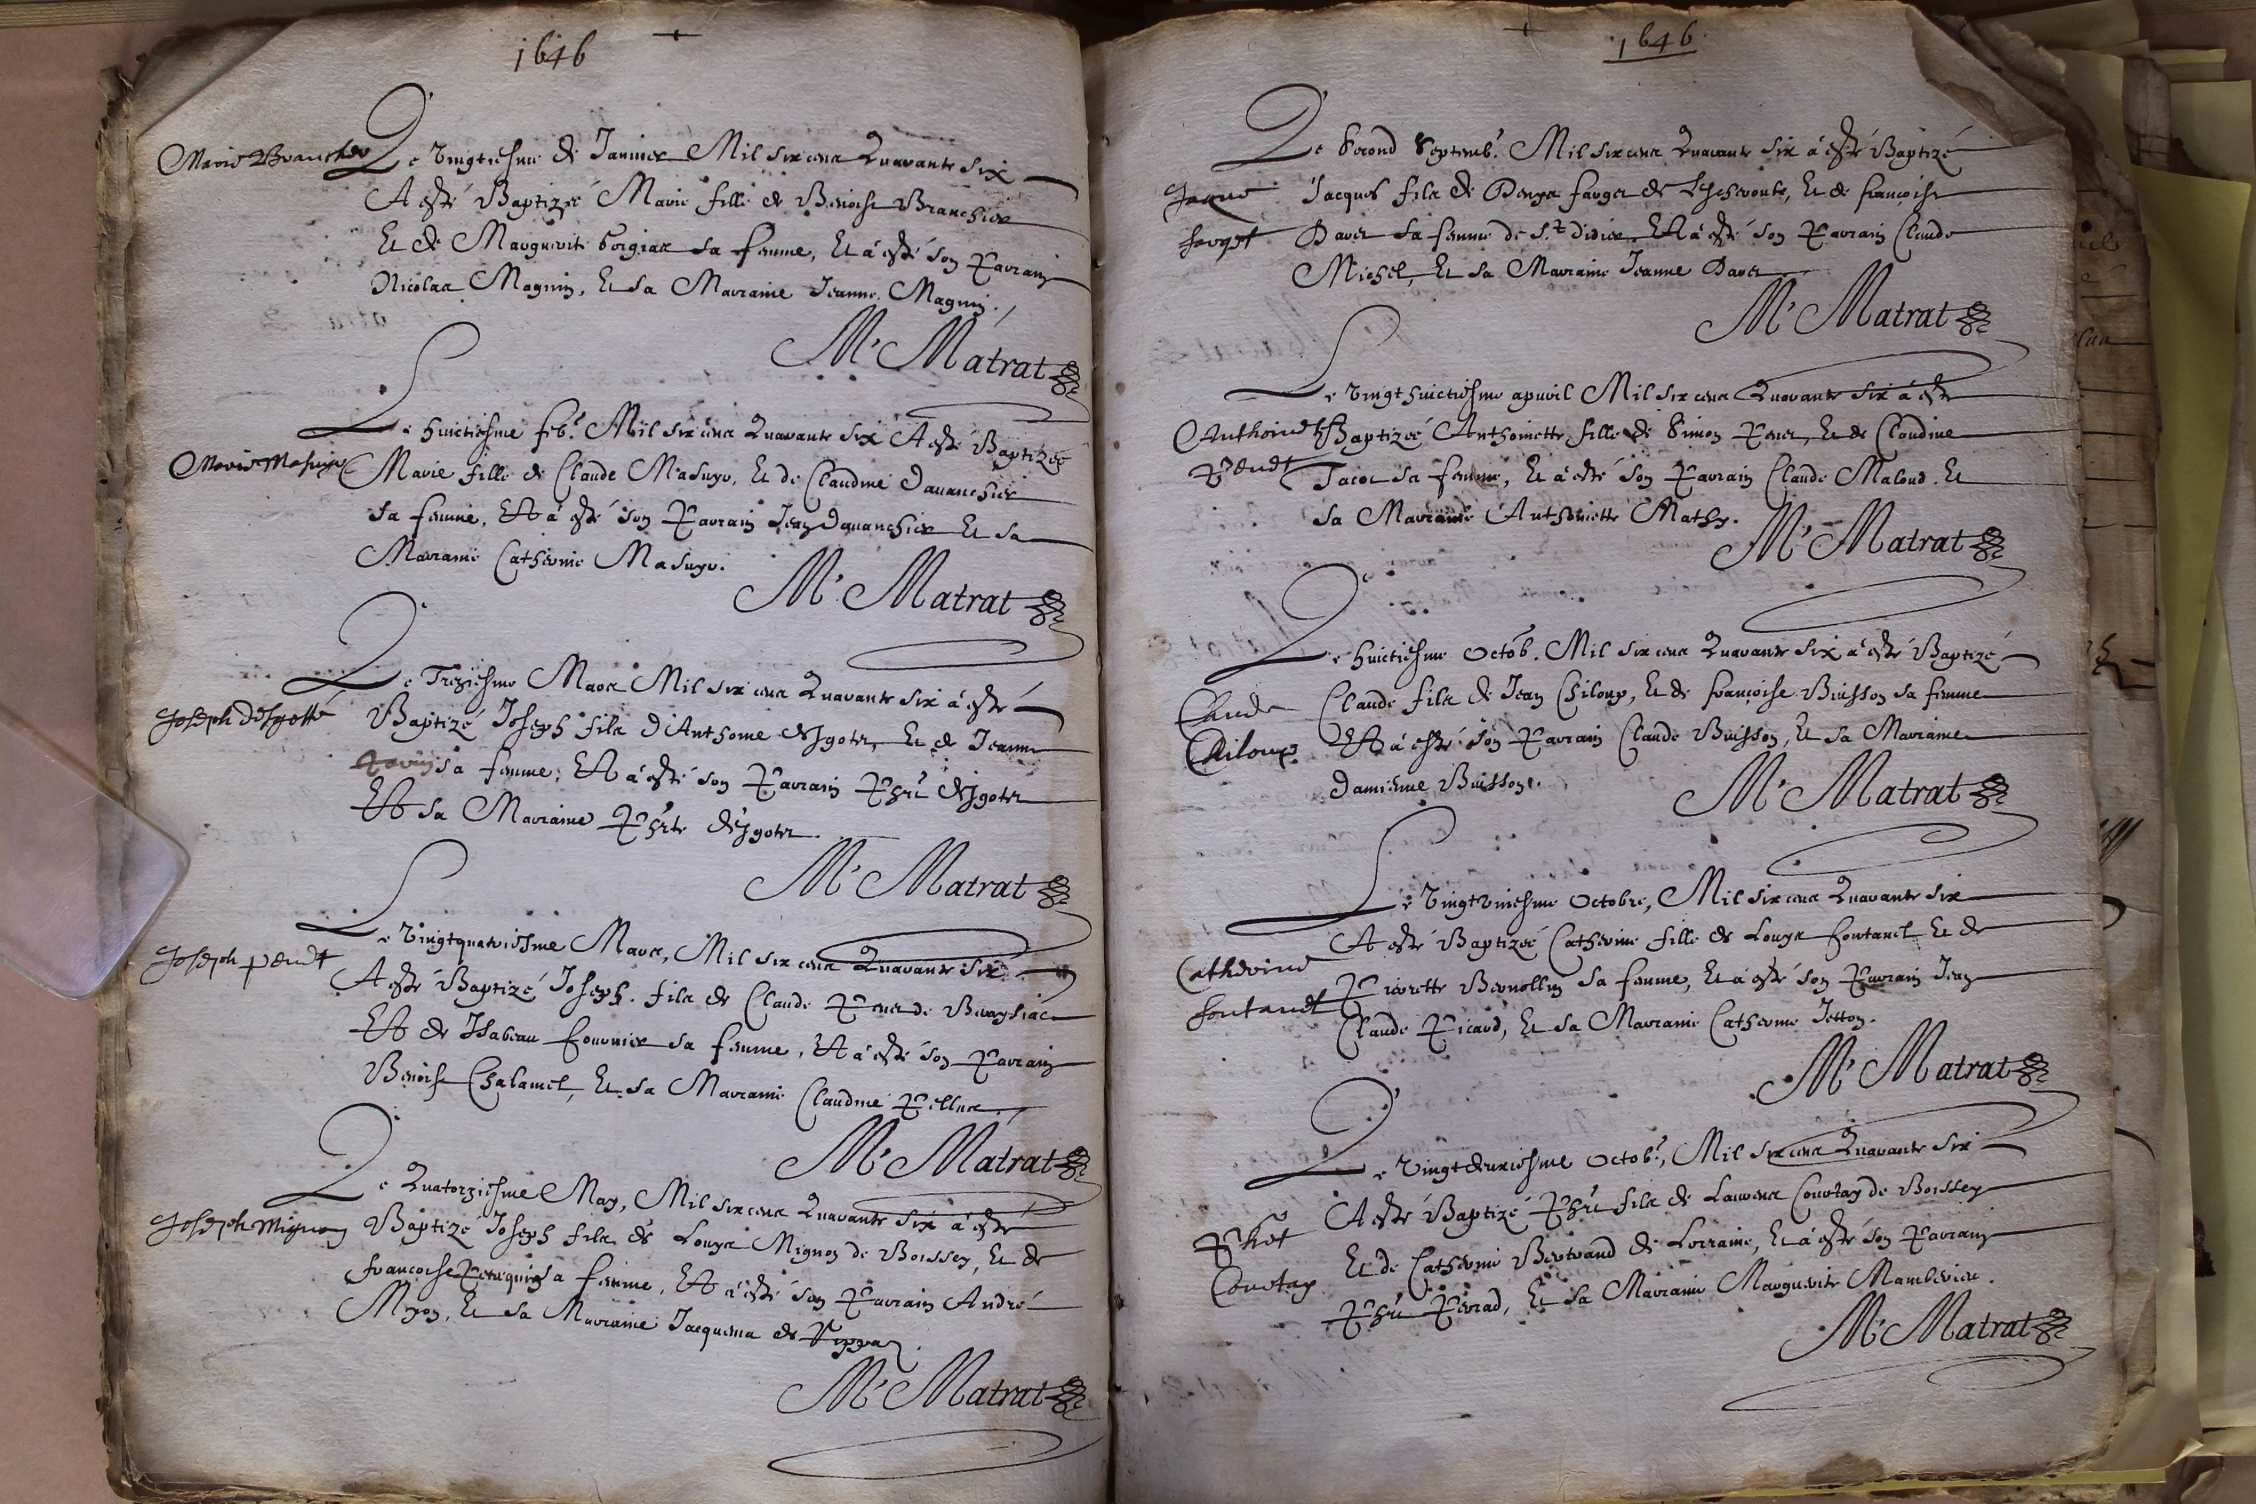 1646
Marie Branchier
Le vingtiesme de Januier Mil six cens Quarante six
A esté Baptizée Marie fille de Benoist Branchier
Et de Marguerite sa femme, Et a esté son Parrain
Nicolas Magnin, Et sa Marraine Jeanne Magnin.
M.e Matrat
Le huictiesme feb.r Mil six cens Quarante six A esté Baptizée
Marie Masuyo
Marie fille de Claude Masuyo, Et de Claudine Dauanchier
sa femme, Et a esté son Parrain Jean Dauanchier Et sa
Marraine Catherine Masuyo.
M.e Matrat
Le Treziesme Mars Mil six cens Quarante six a esté
Joseph
Baptizé Joseph fils d'Anthoine Et de Jeanne
sa femme, Et a esté son Parrain Phe
Et sa Marraine Phte
M.e Matrat
Le vingtquatriesme Mars, Mil six cens Quarante six
Joseph
A esté Baptizé Joseph fils de Claude de
Et de Isabeau fournier sa femme, Et a esté son Parrain
Benoist Chalamel, Et sa Marraine Claudine
M.e Matrat
Le Quatorziesme May, Mil six cens Quarante six a esté
Joseph Mignon
Baptizé Joseph fils de Louys Mignon de Boissey, Et de
francoise sa femme, Et a esté son Parrain André
Et sa Marraine Jacquema de
M.e Matrat
1646
Le Second Septemb.e Mil six cens Quarante six a esté Baptizé
Jaque
farget
Jacques fils de Denys farget de Et de francoise
Dauet sa femme de S.t didier. Et a esté son Parrain Claude
Michel, Et sa Marraine Jeanne Dauet.
M.e Matrat
Le vingthuictiesme apuril Mil six cens Quarante six a esté
Anthoinette
Baptizée Anthoinette fille de Simon Et de Claudine
Jacot sa femme, Et a esté son Parrain Claude Et
sa Marraine Anthoinette Mathy.
M.e Matrat
Le huictiesme Octob. Mil six cens Quarante six a esté Baptizé
Claude
Chiloup
Claude fils de Jean Chiloup, Et de francoise Buisson sa femme
Et a esté son Parrain Claude Buisson, Et sa Marraine
Damienne Buisson.
M.e Matrat
Le vingtvniesme Octobre, Mil six cens Quarante six
A esté Baptizée Catherine fille de Louys fontanel Et de
Catherine
fontanel
Pierrette Bernollin sa femme, Et a esté son Parrain Jean
Claude Picard, Et sa Marraine Catherine Jetton.
M.e Matrat
Le vingtdeuxiesme Octob.e, Mil six cens Quarante six
A esté Baptizé Phe fils de Laurens Courtay de Boissey
Courtay
Et de Catherine Bertrand de Lorraine, Et a esté son Parrain
Phe Et sa Marraine Marguerite
M.e Matrat